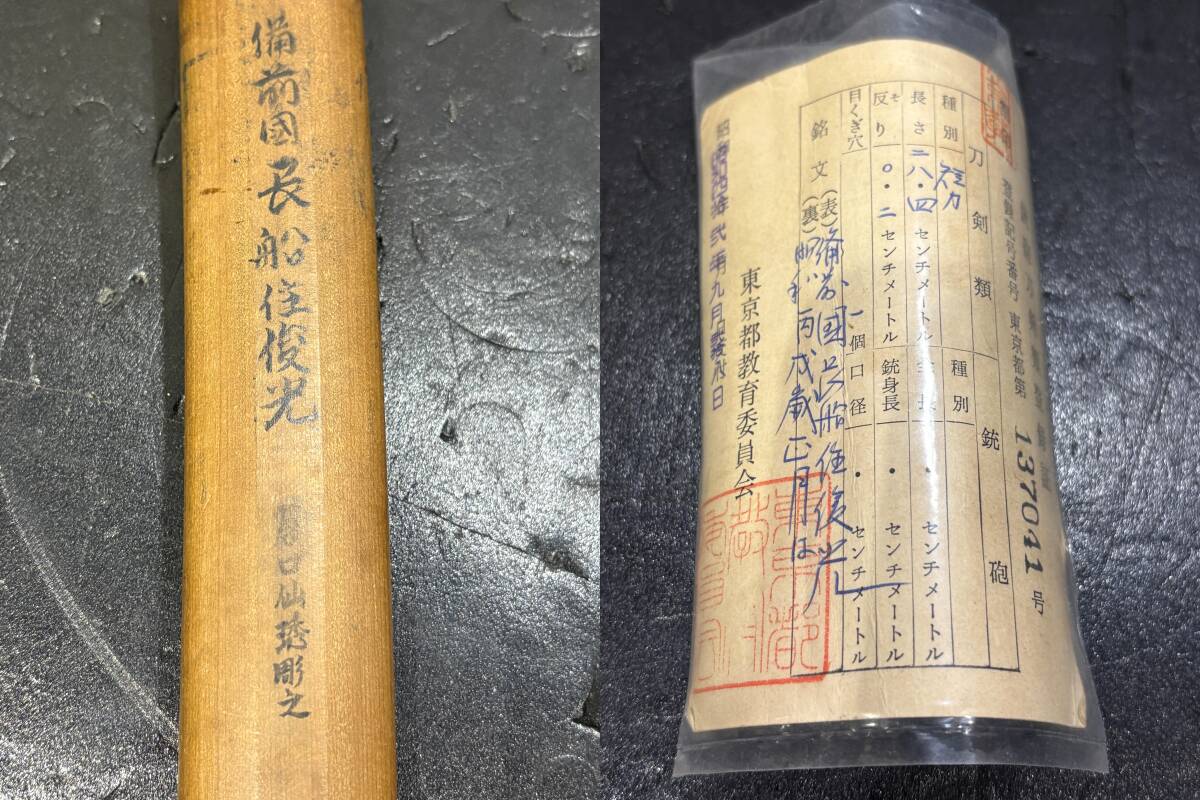 備前國長船住俊光
口仙琇彫之
刀剣類
銃砲
登録記号番号 東京都第 137041 号
種別 短刀
種別
長さ 二八・四 センチメートル
全長 ・ センチメートル
反り そ 〇・二 センチメートル
銃身長 ・ センチメートル
目くぎ穴 一個
口径 ・ センチメートル
銘文 (表) 備前國長船住俊光
(裏) 明和丙戌歳正月日
年九月 日
東京都教育委員会